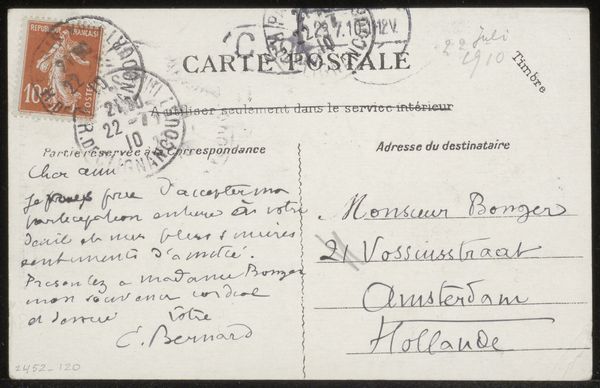 REPUBLIQUE FRANÇAISE
10
POSTES
22 - 7
10
22 juli
1910
CARTE POSTALE
Timbre
A utiliser seulement dans le service intérieur
Partie réservée à la Correspondance
Adresse du destinataire
Cher ami
Je vous prie d'accepter ma
participation entière à votre
deuil et mes plus sincères
sentiments d'amitié.
Presentez a madame Bonger
mon souvenir cordial
et
Votre
E. Bernard
Monsieur Bonger
21 Vossiusstraat
Amsterdam
Hollande
2452-120